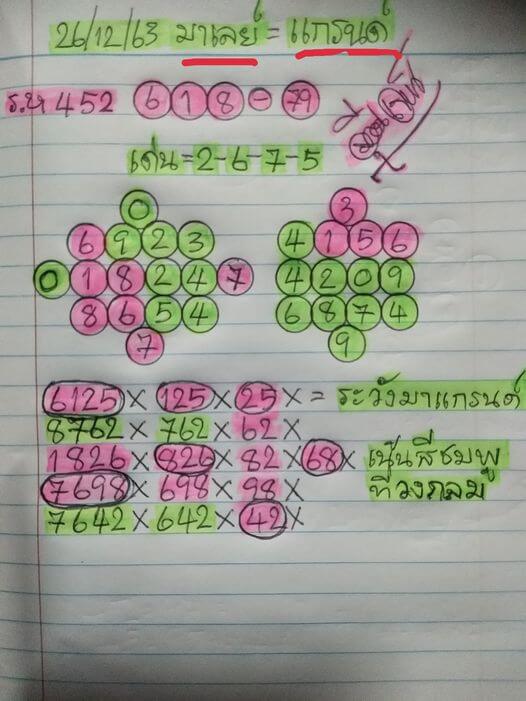 26/12/63 มาเลย์ = แกรนด์
ร.ห 452 6 1 8 - 79
เด่น = 2-6-7-5
0
6 9 2 3
0 1 8 2 4 7
8 6 5 4
7
3
4 1 5 6
4 2 0 9
6 8 7 4
9
6125 x 125 x 25 x = ระวังมาแกรนด์
8762 x 762 x 62 x
1826 x 826 x 82 x 68 x เน้นสีชมพู
7698 x 698 x 98 x ที่วงกลม
7642 x 642 x 42 x